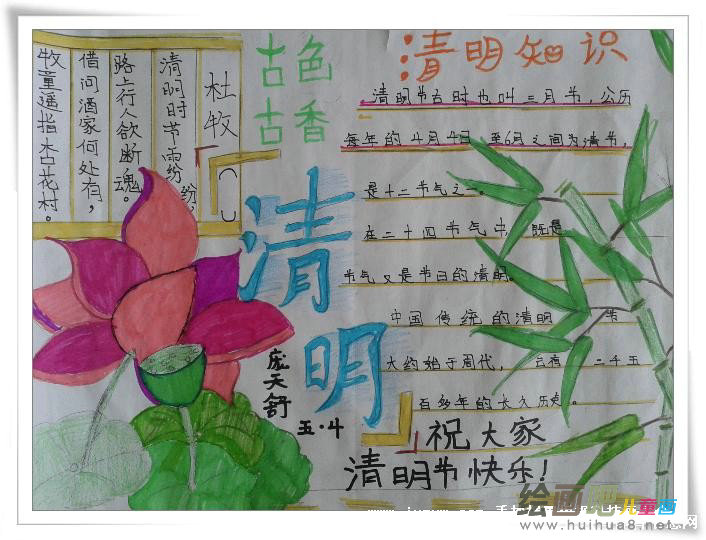 杜牧
清明时节雨纷纷,
路上行人欲断魂。
借问酒家何处有,
牧童遥指杏花村。
古色
古香
清明
庞天舒
五·4
清明知识
清明节古时也叫三月节,公历
每年的4月4日 至6月之间为清节,
是十二节气之一。
在二十四节气中, 既是
节气又是节日的清明。
中国传统的清明 节
大约始于周代, 二千五
百多年的 历史。
祝大家
清明节快乐!
绘画吧儿童画
www.huihua8.net